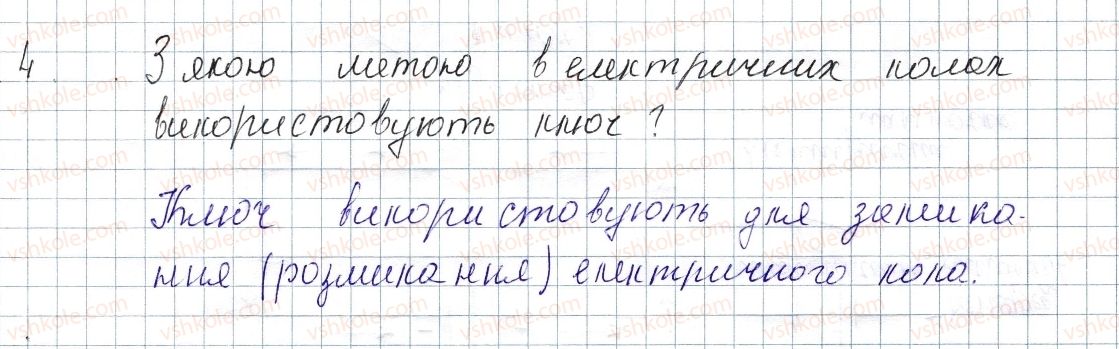 4 З якою метою в електричних колах
використовують ключ?
Ключ використовують для замика-
ння (розмикання) електричного кола.